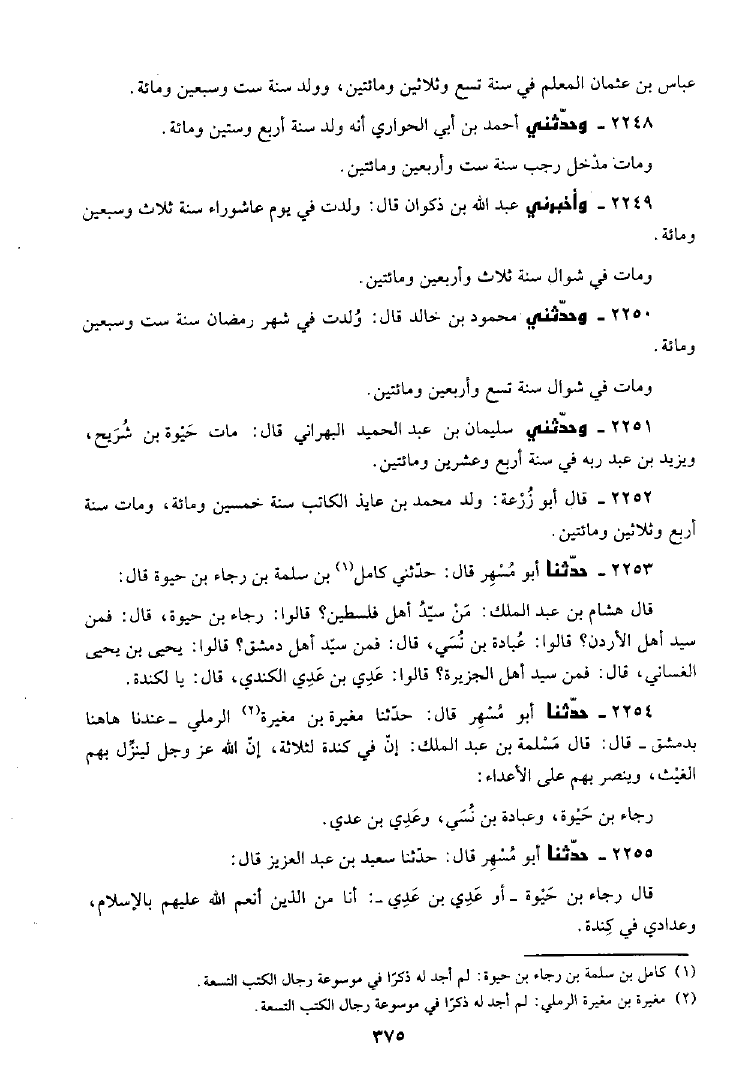 عباس بن عثمان المعلم في سنة تسع وثلاثين ومائتين، وولد سنة ست وسبعين ومائة.
٢٢٤٨ ـ وحدّثني أحمد بن أبي الحواري أنه ولد سنة أربع وستين ومائة.
ومات مدْخل رجب سنة ست وأربعين ومائتين.
٢٢٤٩ ـ وأخبرني عبد الله بن ذكوان قال: ولدت في يوم عاشوراء سنة ثلاث وسبعين
ومائة.
ومات في شوال سنة ثلاث وأربعين ومائتين.
٢٢٥٠ ـ وحدّثني محمود بن خالد قال: وُلدت في شهر رمضان سنة ست وسبعين
ومائة.
ومات في شوال سنة تسع وأربعين ومائتين.
٢٢٥١ ـ وحدّثني سليمان بن عبد الحميد البهراني قال: مات حَيْوة بن شُرَيح،
ويزيد بن عبد ربه في سنة أربع وعشرين ومائتين.
٢٢٥٢ ـ قال أبو زُرْعة: ولد محمد بن عايذ الكاتب سنة خمسين ومائة، ومات سنة
أربع وثلاثين ومائتين.
٢٢٥٣ ـ حدّثنا أبو مُسْهِر قال: حدّثني كامل(١) بن سلمة بن رجاء بن حيوة قال:
قال هشام بن عبد الملك: مَنْ سيّدُ أهل فلسطين؟ قالوا: رجاء بن حيوة، قال: فمن
سيد أهل الأردن؟ قالوا: عُبادة بن نُسَي، قال: فمن سيّد أهل دمشق؟ قالوا: يحيى بن يحيى
الغساني، قال: فمن سيد أهل الجزيرة؟ قالوا: عَدِي بن عَدِي الكندي، قال: يا لكندة.
٢٢٥٤ ـ حدّثنا أبو مُسْهِر قال: حدّثنا مغيرة بن مغيرة(٢) الرملي ـ عندنا هاهنا
بدمشق ـ قال: قال مَسْلمة بن عبد الملك: إنّ في كندة لثلاثة، إنّ الله عز وجل لينزِّل بهم
الغيْث، وينصر بهم على الأعداء:
رجاء بن حَيْوة، وعبادة بن نُسَي، وعَدِي بن عدي.
٢٢٥٥ ـ حدّثنا أبو مُسْهِر قال: حدّثنا سعيد بن عبد العزيز قال:
قال رجاء بن حَيْوة ـ أو عَدِي بن عَدِي ـ: أنا من الذين أنعم الله عليهم بالإسلام،
وعدادي في كِندة.
(١) كامل بن سلمة بن رجاء بن حيوة: لم أجد له ذكرًا في موسوعة رجال الكتب التسعة.
(٢) مغيرة بن مغيرة الرملي: لم أجد له ذكرًا في موسوعة رجال الكتب التسعة.
٣٧٥